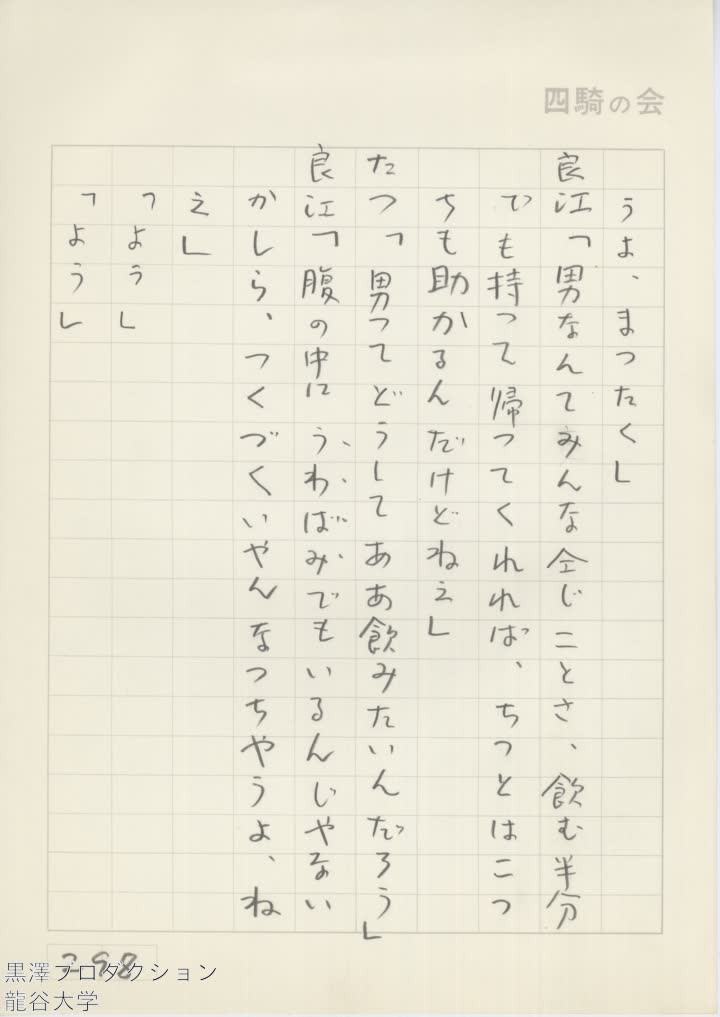 四騎の会
うよ、まつたく」
良江「男なんてみんな仝じことさ、飲む半分
でも持って帰ってくれれば、ちっとはこっ
ちも助かるんだけどねえ」
たつ「男ってどうしてああ飲みたいんだろう」
良江「腹の中にうわばみでもいるんじやない
かしら、つくづくいやんなっちやうよ、ね
え」
「よう」
「よう」
298
黒澤プロダクション
龍谷大学